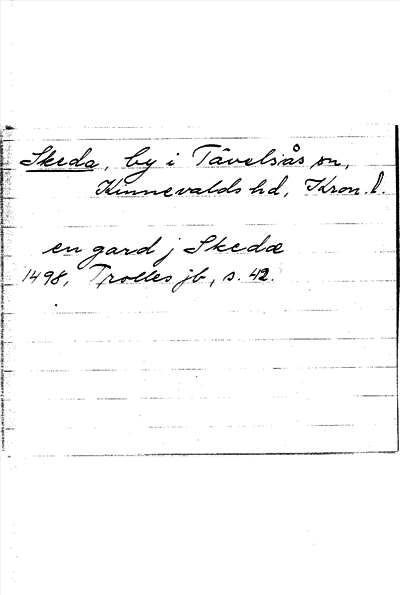 Skeda, by i Tävelsås sn,
Kinnevalds hd, Kron. l.
en gard j Skedæ
1498, Trolles jb, s. 42.